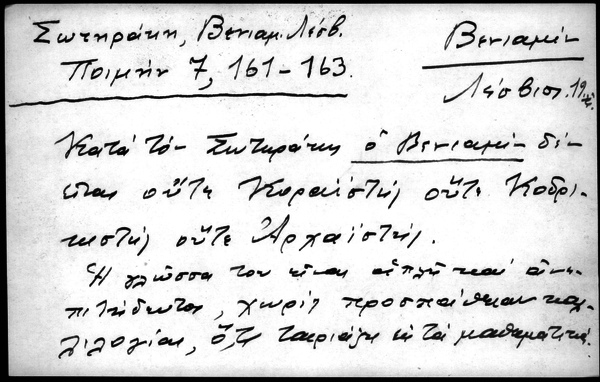 Σωτηράκη, Βενιαμ. Λέσβ.
Ποιμήν 7, 161-163.
Βενιαμίν
Λέσβιος. 19
Κατὰ τὸν Σωτηράκη ὁ Βενιαμὶν δὲν
εἶναι οὔτε Κοραϊστὴς οὔτε Κοδρι-
κιστὴς οὔτε Ἀρχαϊστής.
Ἡ γλῶσσα του εἶναι ἁπλῆ καὶ ἀνε-
πιτήδευτος, χωρὶς προσπάθειαν καλ-
λιλογίας, ὅ,τι ταιριάζει εἰς τὰ μαθηματικά.